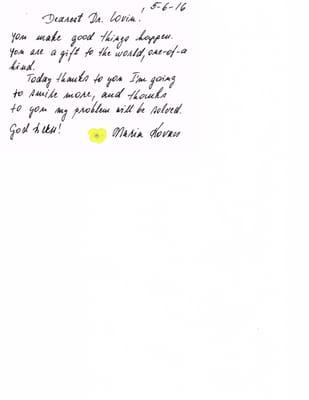 5-6-16
Dearest Dr. Lovin!
You make good things happen.
You are a gift to the world, one-of-a
kind.
Today thanks to you I'm going
to smile more, and thanks
to you my problem will be solved.
God bless!
Maria Kovacs